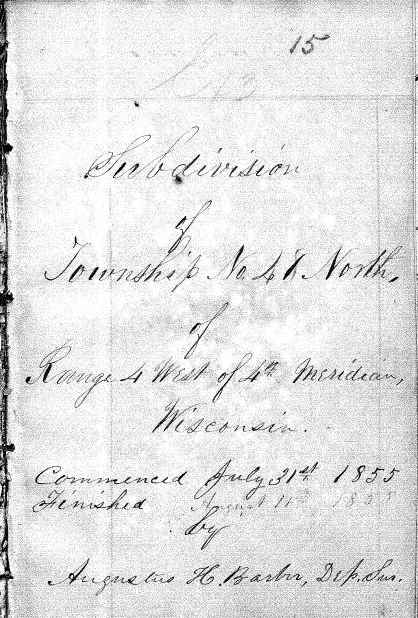 15
Subdivision
of
Township No. 48 North,
of
Range 4 West of 4th Meridian,
Wisconsin.
Commenced July 31st 1855
Finished August 11th 1855
by
Augustus H. Barber, Dep. Sur.